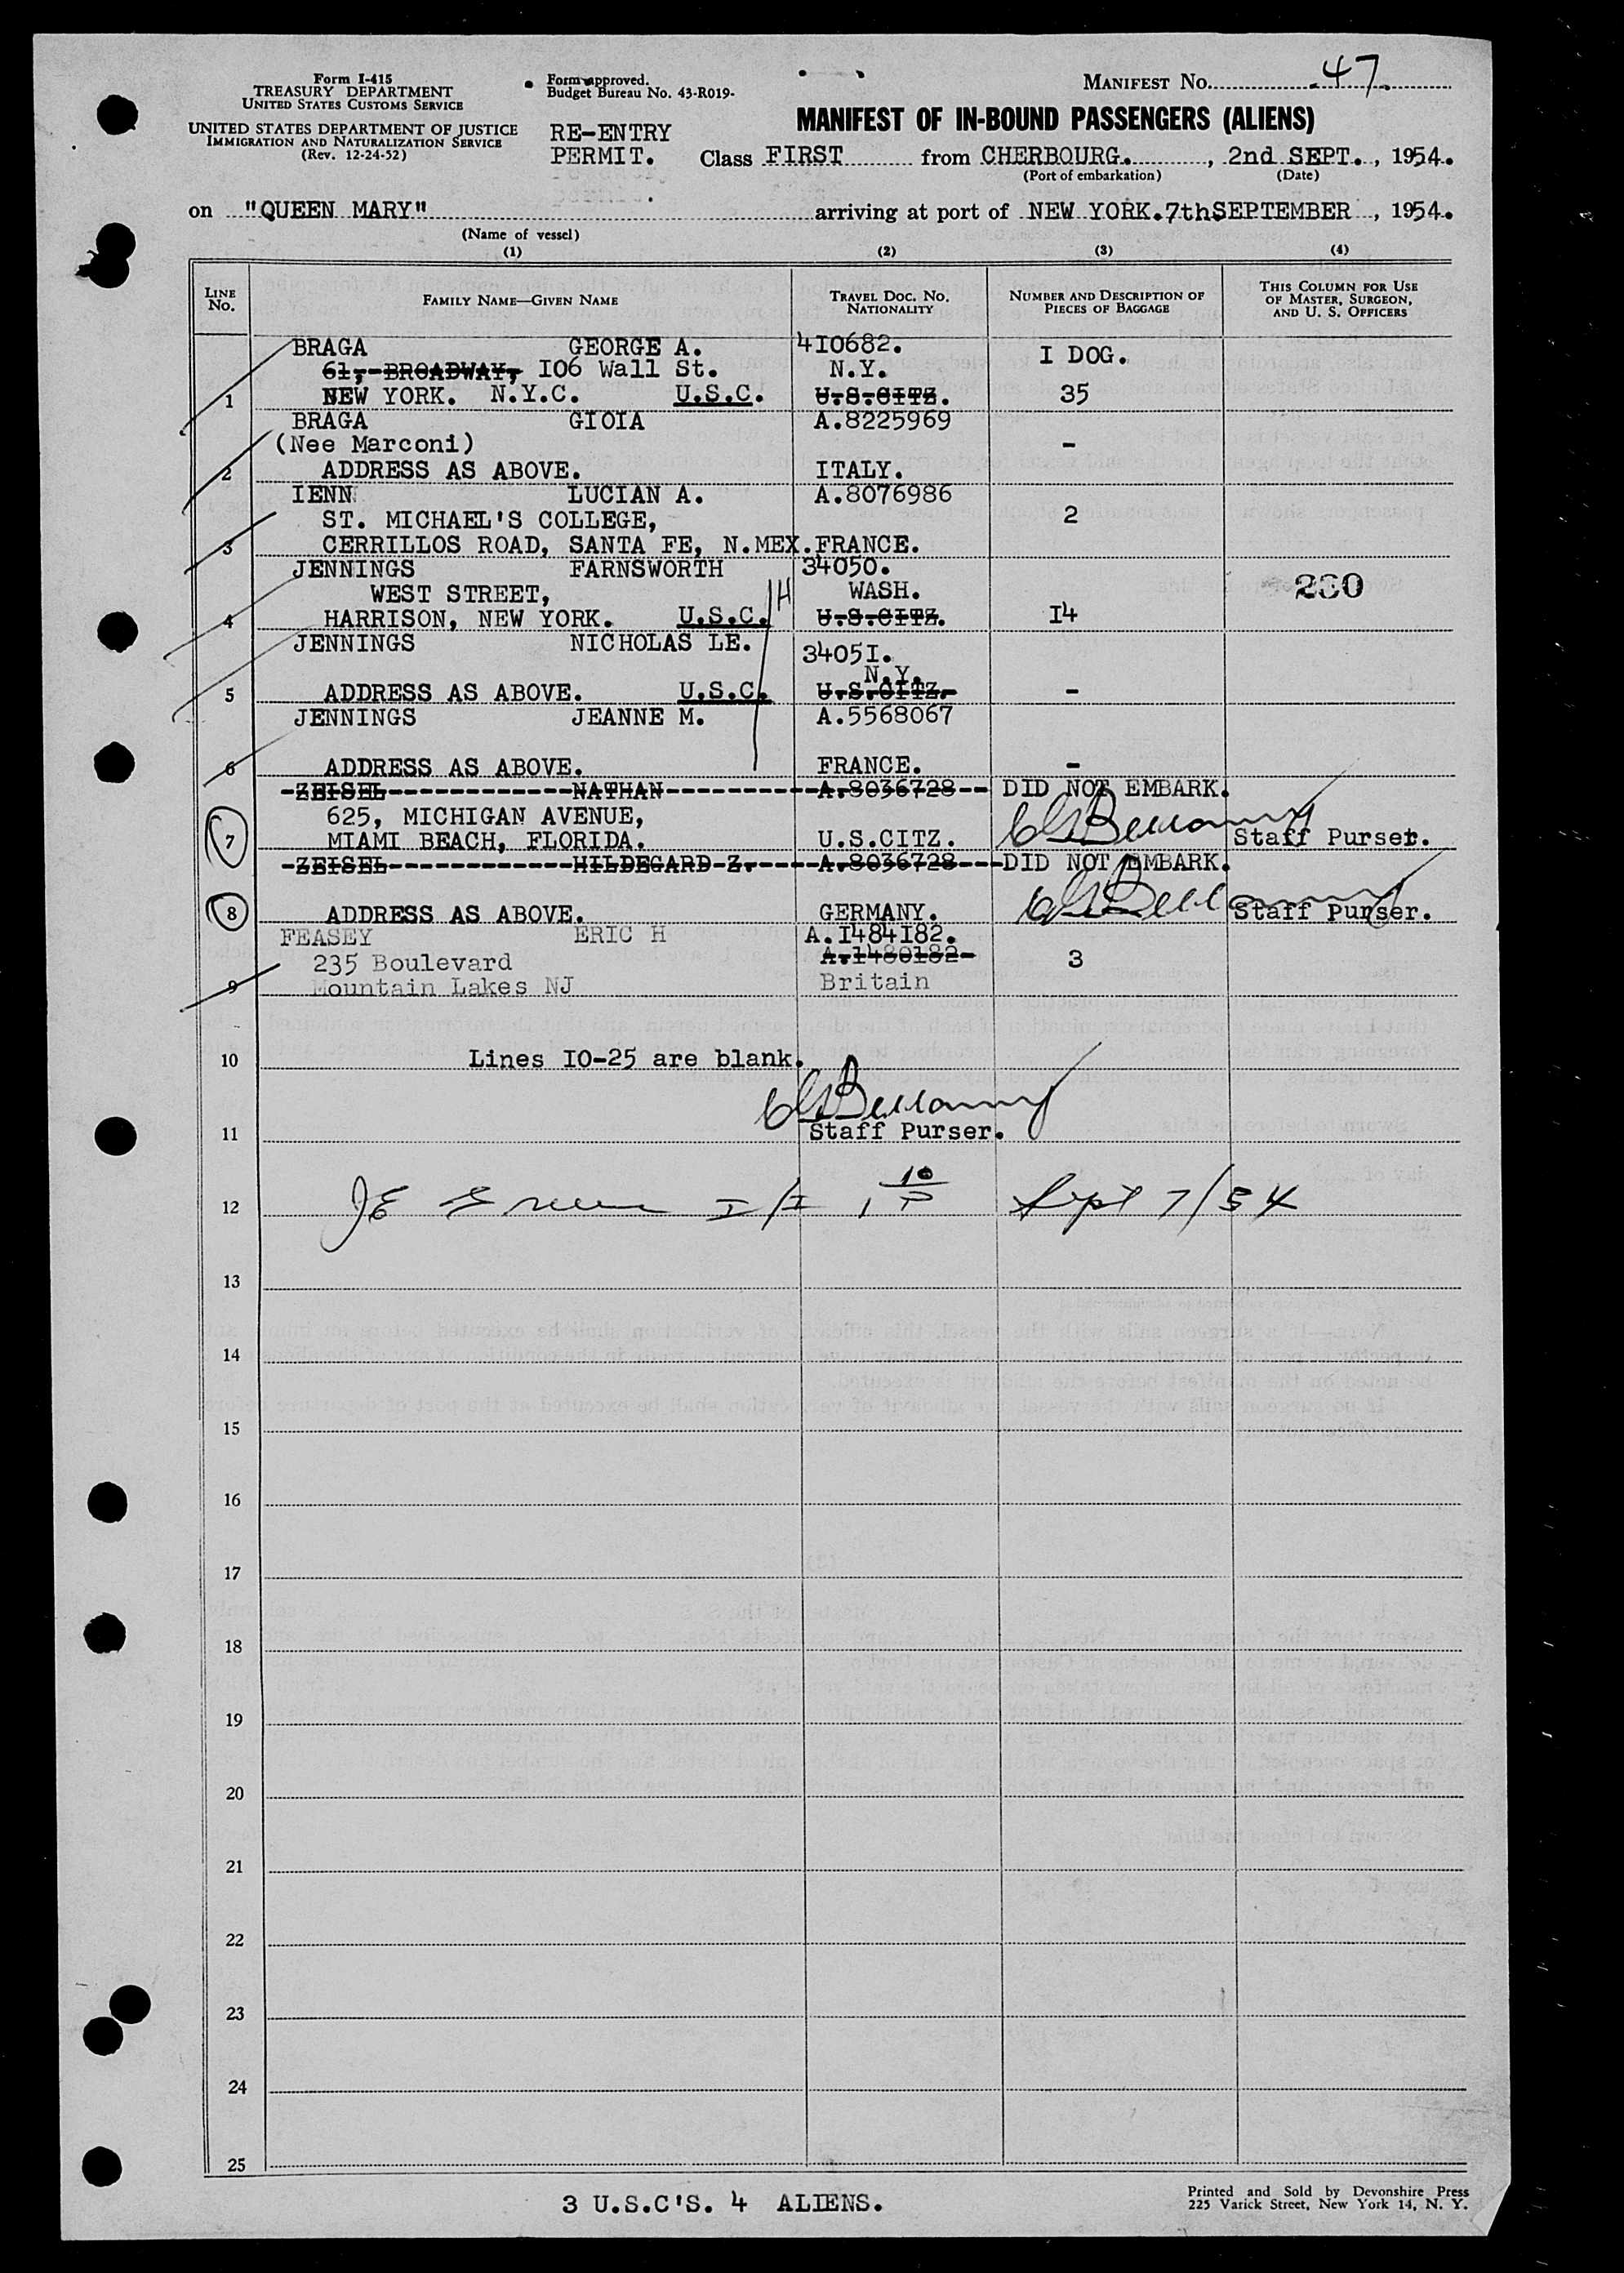 Form I-415
TREASURY DEPARTMENT
UNITED STATES CUSTOMS SERVICE
UNITED STATES DEPARTMENT OF JUSTICE
IMMIGRATION AND NATURALIZATION SERVICE
(Rev. 12-24-52)
Form approved.
Budget Bureau No. 43-R019-
RE-ENTRY
PERMIT.
MANIFEST No. 47
MANIFEST OF IN-BOUND PASSENGERS (ALIENS)
Class FIRST from CHERBOURG., 2nd SEPT., 1954.
(Port of embarkation) (Date)
on "QUEEN MARY" arriving at port of NEW YORK. 7th SEPTEMBER, 1954.
(Name of vessel)
(1) (2) (3) (4)
LINE No. FAMILY NAME—GIVEN NAME TRAVEL DOC. NO. NATIONALITY NUMBER AND DESCRIPTION OF PIECES OF BAGGAGE THIS COLUMN FOR USE OF MASTER, SURGEON, AND U. S. OFFICERS
BRAGA GEORGE A. 4I0682. I DOG.
61, BROADWAY, I06 Wall St. N.Y.
1 NEW YORK. N.Y.C. U.S.C. U.S.CITZ. 35
BRAGA GIOIA A.8225969
(Nee Marconi) -
2 ADDRESS AS ABOVE. ITALY.
IENN LUCIAN A. A.8076986
ST. MICHAEL'S COLLEGE, 2
3 CERRILLOS ROAD, SANTA FE, N.MEX. FRANCE.
JENNINGS FARNSWORTH 34050.
WEST STREET, WASH. 230
4 HARRISON, NEW YORK. U.S.C. U.S.CITZ. I4
JENNINGS NICHOLAS LE. 3405I.
N.Y.
5 ADDRESS AS ABOVE. U.S.C. U.S.CITZ. -
JENNINGS JEANNE M. A.5568067
6 ADDRESS AS ABOVE. FRANCE. -
-ZEISEL------------NATHAN----------A.8036728-- DID NOT EMBARK.
625, MICHIGAN AVENUE,
7 MIAMI BEACH, FLORIDA. U.S.CITZ. Staff Purser.
-ZEISEL------------HILDEGARD-Z.----A.8036728---DID NOT EMBARK.
8 ADDRESS AS ABOVE. GERMANY. Staff Purser.
FEASEY ERIC H A.I484I82.
235 Boulevard A.1480182- 3
9 Mountain Lakes NJ Britain
10 Lines IO-25 are blank.
11 Staff Purser.
12 Sept 7/54
13
14
15
16
17
18
19
20
21
22
23
24
25
3 U.S.C'S. 4 ALIENS.
Printed and Sold by Devonshire Press
225 Varick Street, New York 14, N. Y.